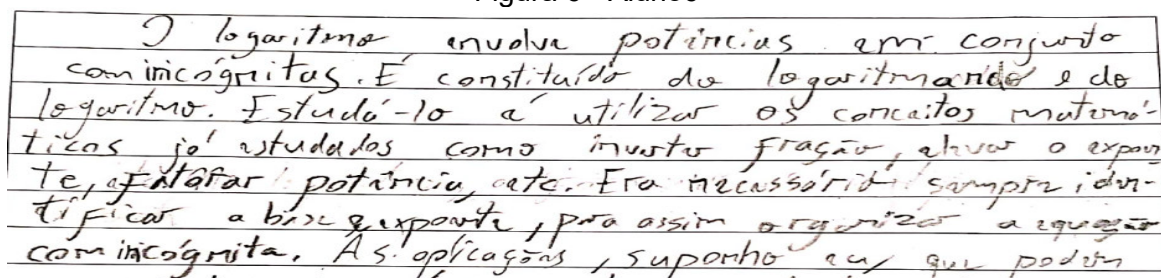 O logaritmo envolve potências em conjunto
com incógnitas. É constituído do logaritmando e do
logaritmo. Estudá-lo é utilizar os conceitos matemá-
ticos já estudados como inverter fração, elevar o expoen
te, fatorar potência, etc. Era necessário sempre iden-
tificar a base e expoente, pra assim organizar a equação
com incógnita. As aplicações, suponho eu, que podem